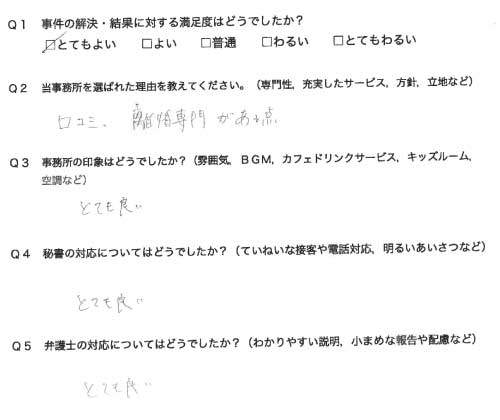 Q1 事件の解決・結果に対する満足度はどうでしたか?
☑とてもよい □よい □普通 □わるい □とてもわるい
Q2 当事務所を選ばれた理由を教えてください。(専門性,充実したサービス,方針,立地など)
口コミ、離婚専門がある点
Q3 事務所の印象はどうでしたか?(雰囲気,BGM,カフェドリンクサービス,キッズルーム,
空調など)
とても良い
Q4 秘書の対応についてはどうでしたか?(ていねいな接客や電話対応,明るいあいさつなど)
とても良い
Q5 弁護士の対応についてはどうでしたか?(わかりやすい説明,小まめな報告や配慮など)
とても良い